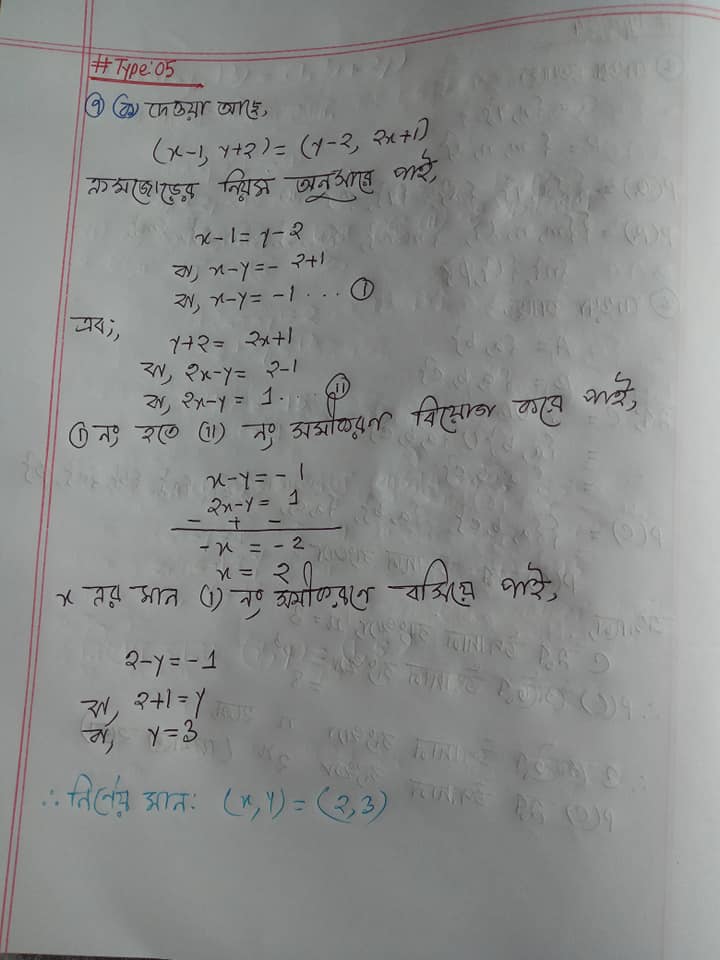 # Type: 05
৭ ক দেওয়া আছে,
(x-1, y+2) = (y-2, 2x+1)
ক্রমজোড়ের নিয়ম অনুসারে পাই,
x-1 = y-2
বা, x-y = -2+1
বা, x-y = -1 ... (i)
এবং,
y+2 = 2x+1
বা, 2x-y = 2-1
বা, 2x-y = 1 ... (ii)
(i) নং হতে (ii) নং সমীকরণ বিয়োগ করে পাই,
x-y = -1
2x-y = 1
- + -
-x = -2
x = 2
x এর মান (i) নং সমীকরণে বসিয়ে পাই,
2-y = -1
বা, 2+1 = y
বা, y = 3
∴ নির্ণেয় মান: (x, y) = (2, 3)